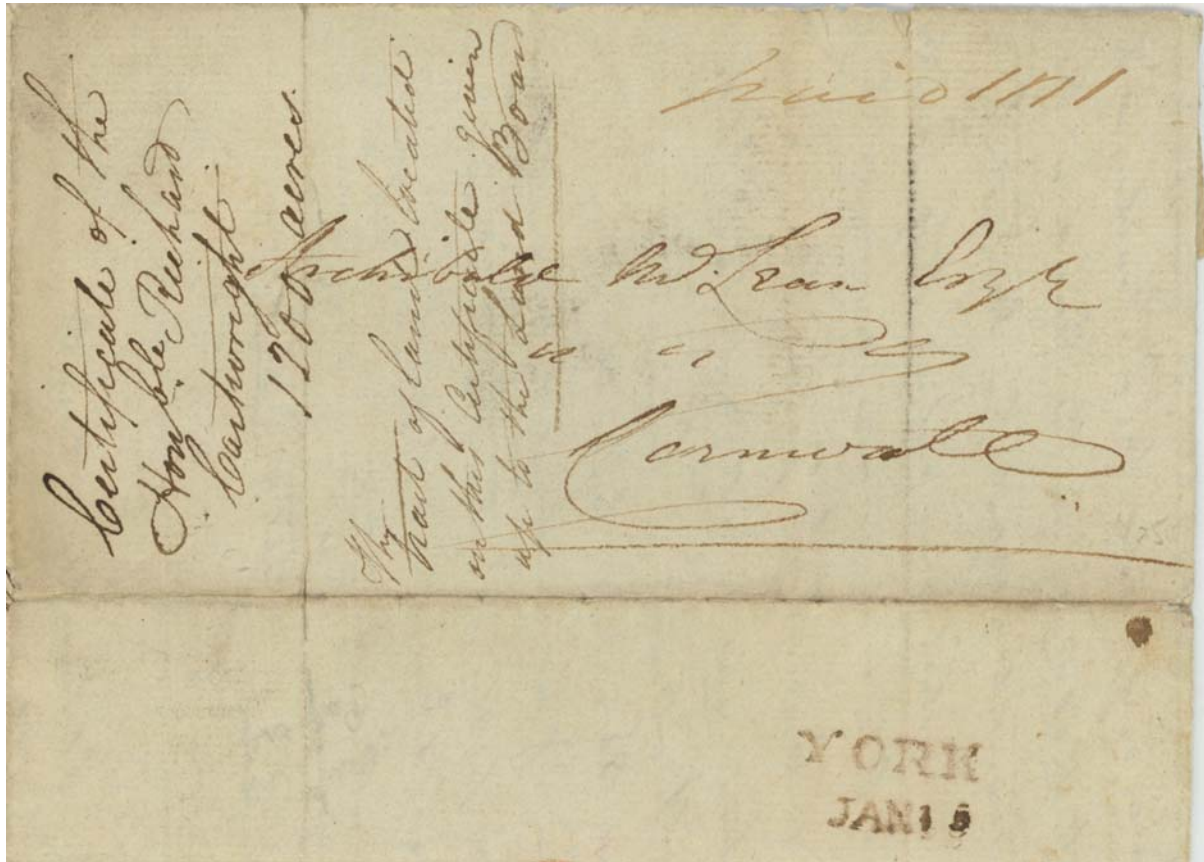 Certificate of the
Honble Richard
Cartwright
1200 acres.
The
tract of land located
on this Certificate given
up to the Land Board
paid
Archibald McLean Esqr
Cornwall
YORK
JAN